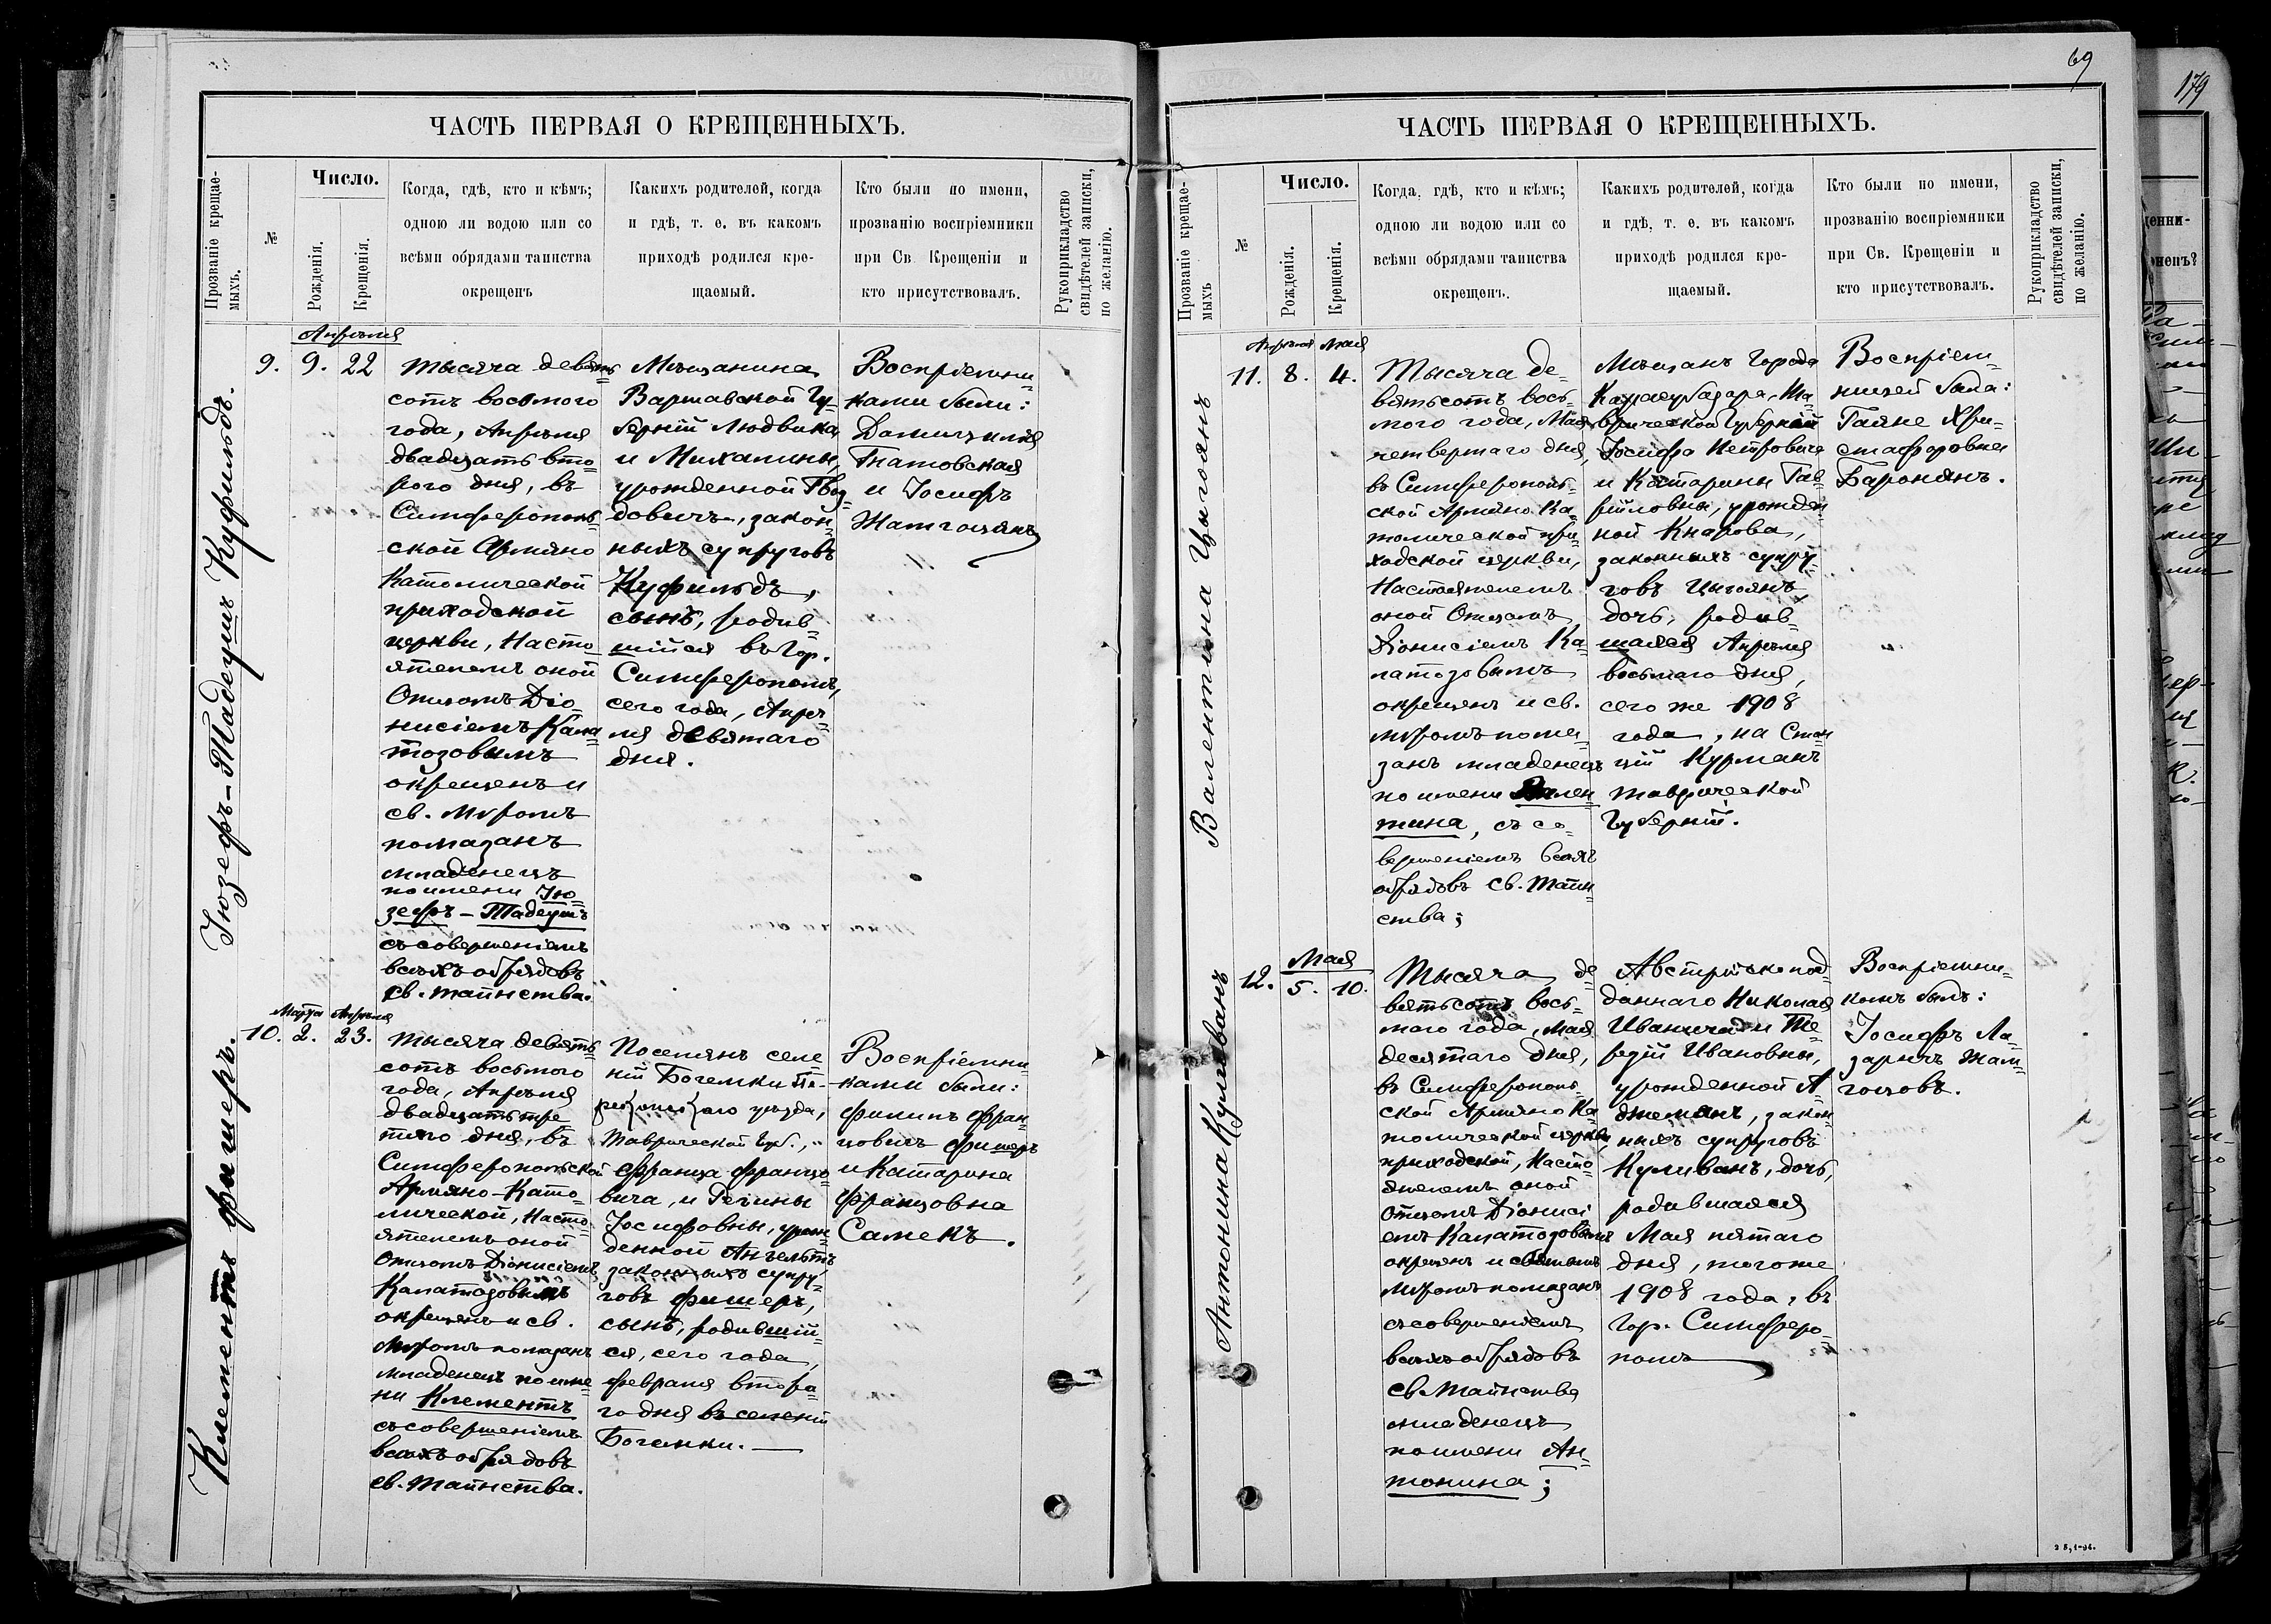 69
179
ЧАСТЬ ПЕРВАЯ О КРЕЩЕННЫХЪ.
Прозваніе крещае-
мыхъ.
№
Число.
Рожденія.
Крещенія.
Когда, гдѣ, кто и кѣмъ;
одною ли водою или со
всѣми обрядами таинства
окрещенъ
Какихъ родителей, когда
и гдѣ, т. е. въ какомъ
приходѣ родился кре-
щаемый.
Кто были по имени,
прозванію воспріемники
при Св. Крещеніи и
кто присутствовалъ.
Рукоприкладство
свидѣтелей записки,
по желанію.
Іюзефъ-Тадеушъ Куфильдъ.
Апрѣля
9. 9. 22
Тысяча девять
сотъ восьмого
года, Апрѣля
двадцать вто-
рого дня, въ
Симферополь-
ской Армяно
Католической
приходской
церкви, Насто-
ятелемъ оной
Отцомъ Діо-
нисіемъ Кала-
тозовымъ
окрещенъ и
св. Мѵромъ
помазанъ
младенецъ
по имени Ію-
зефъ-Тадеушъ
съ совершеніемъ
всѣхъ обрядовъ
св. таинства.
Мѣщанина
Варшавской Гу-
берніи Людвика
и Михалины,
урожденной
довичъ, закон-
ныхъ супруговъ
Куфильдъ,
сынъ, родив-
шійся въ Гор.
Симферополѣ,
сего года, Апрѣ-
ля девятаго
дня.
Воспріемни-
ками были:
и Іосифъ
Жамгоцянъ
Климентъ Фишеръ.
Марта Апрѣля
10. 2. 23.
Тысяча девять
сотъ восьмого
года, Апрѣля
двадцать тре-
тяго дня, въ
Симферопольской
Армяно-Като-
лической, Насто-
ятелемъ оной
Отцомъ Діонисіемъ
Калатозовымъ
окрещенъ и св.
Мѵромъ помазанъ
младенецъ по име-
ни Климентъ
съ совершеніемъ
всѣхъ обрядовъ
св. Таинства.
Поселянъ селе-
ній Богемки Пе-
рекопскаго уѣзда,
Таврической Губ.,
Франца Францо-
вича, и Регины
Іосифовны, урож-
денной
законныхъ супру-
говъ Фишеръ,
сынъ, родившій-
ся, сего года,
февраля второ-
го дня въ селеніи
Богемки.
Воспріемни-
ками были:
Филипъ Фран-
цовичъ Фишеръ
и Катарина
Францовна
Самекъ.
ЧАСТЬ ПЕРВАЯ О КРЕЩЕННЫХЪ.
Прозваніе крещае-
мыхъ
№
Число.
Рожденія.
Крещенія.
Когда, гдѣ, кто и кѣмъ;
одною ли водою или со
всѣми обрядами таинства
окрещенъ.
Какихъ родителей, когда
и гдѣ, т. е. въ какомъ
приходѣ родился кре-
щаемый.
Кто были по имени,
прозванію воспріемники
при Св. Крещеніи и
кто присутствовалъ.
Рукоприкладство
свидѣтелей записки,
по желанію.
Валентина Цыгоянъ
Апрѣля Мая
11. 8. 4.
Тысяча де-
вятьсотъ вось-
мого года, Мая
четвертаго дня,
въ Симферополь-
ской Армяно Ка-
толической при-
ходской церкви,
Настоятелемъ
оной Отцомъ
Діонисіемъ Ка-
латозовымъ
окрещенъ и св.
Мѵромъ пома-
занъ младенецъ
по имени Вален-
тина, съ со-
вершеніемъ всѣхъ
обрядовъ св. Таин-
ства;
Мѣщанъ Города
Карасубазара, Та-
врической Губерніи
Іосифа Петровича
и Катарины Гав-
риловны, урожден-
ной Кнарова,
законныхъ супру-
говъ Цыгоянъ,
дочь, родив-
шаяся Апрѣля
восьмаго дня,
сего же 1908
года, на Стан-
ціи Курманъ
Таврической
Губерніи.
Воспріем-
ницей была:
Гаяне Хри-
стофоровна
Баронянъ.
Антонина Куливанъ
Мая
12. 5. 10.
Тысяча де
вятьсотъ вось-
мого года, Мая
десятаго дня,
въ Симферополь-
ской Армяно Ка-
толической церкви
приходской, Насто-
ятелемъ оной
Отцемъ Діонисі-
емъ Калатозовымъ
окрещенъ и святымъ
Мѵромъ помазанъ
съ совершеніемъ
всѣхъ обрядовъ
св. Таинства
младенецъ
по имени Ан-
тонина;
Австрійско под-
даннаго Николая
Иванчича и Те-
резіи Ивановны,
урожденной А-
джеманъ, закон-
ныхъ супруговъ
Куливанъ, дочь,
родившаяся
Мая пятаго
дня, того же
1908 года, въ
Гор. Симферо-
полѣ
Воспріемни-
комъ былъ:
Іосифъ Ла-
заричъ Жам-
гоцовъ.